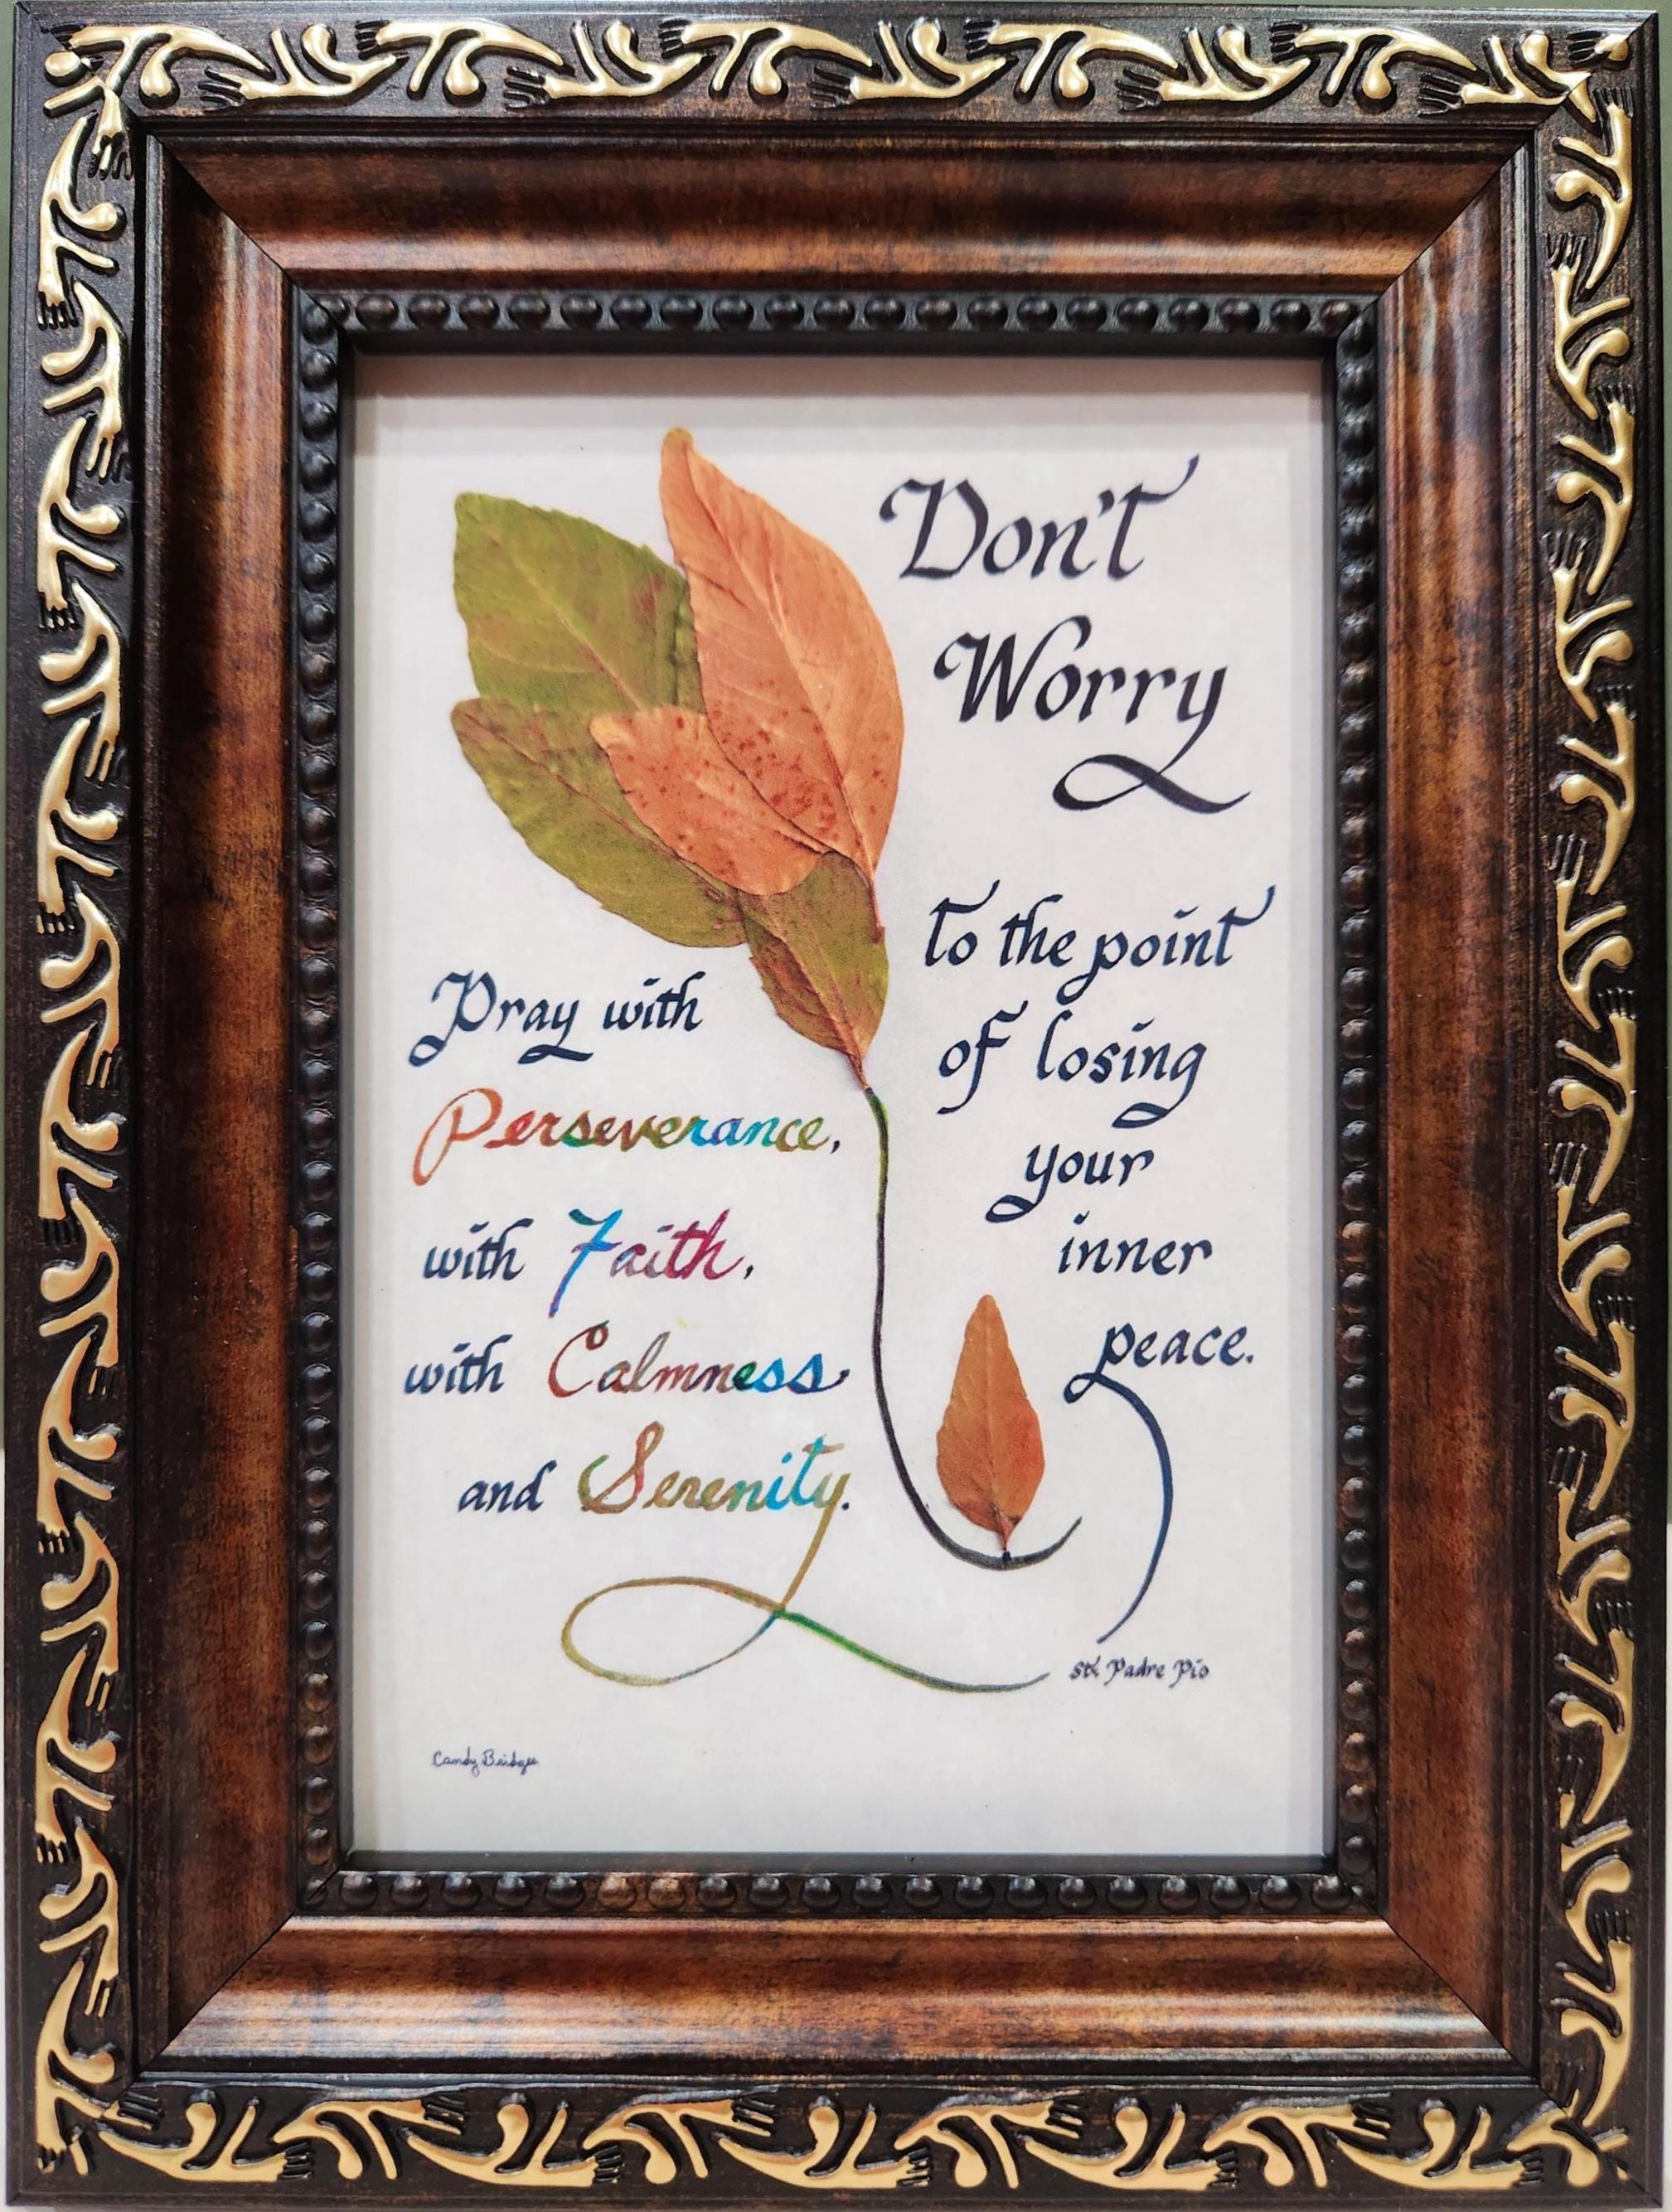 Don't
Worry
to the point
of losing
your
inner
peace.
Pray with
Perseverance,
with Faith,
with Calmness
and Serenity.
St. Padre Pio
Candy Bridges